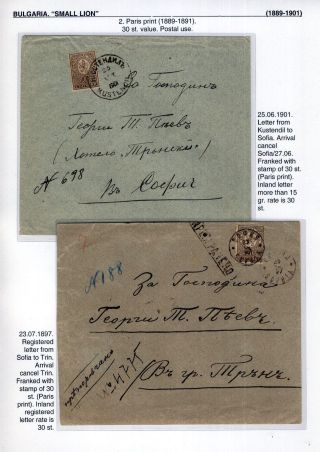 BULGARIA. "SMALL LION" (1889-1901)
2. Paris print (1889-1891).
30 st. value. Postal use.
КЮСТЕНДИЛЪ
KUSTENDIL
За Господинъ
Георги Т. Пѣевъ
(Хотелъ Трънски)
№ 698
Въ София
25.06.1901.
Letter from
Kustendil to
Sofia. Arrival
cancel
Sofia/27.06.
Franked with
stamp of 30 st.
(Paris print).
Inland letter
more than 15
gr. rate is 30
st.
№ 188
За Господина
Георгий Т. Пѣевъ.
Въ гр. Трънъ.
№ 4775
23.07.1897.
Registered
letter from
Sofia to Trin.
Arrival
cancel Trin.
Franked with
stamp of 30
st. (Paris
print). Inland
registered
letter rate is
30 st.